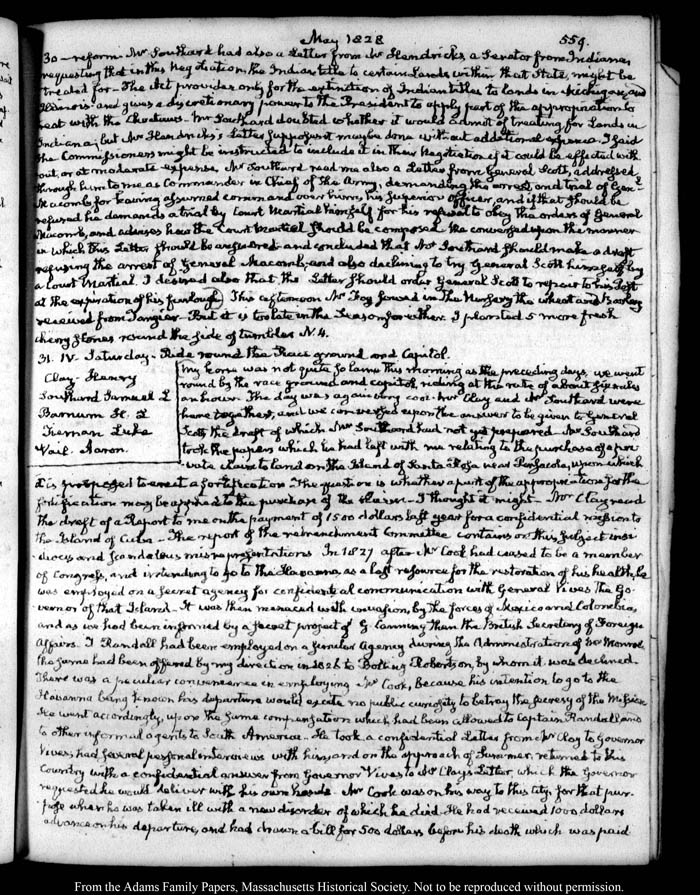 May 1828. 559.
30 — reform. Mr Southard had also a Letter from Mr Hendricks, a Senator from Indiana,
requesting that in this Negotiation, the Indian title to certain Lands within that State, might be
treated for — The Act provides only for the extinction of Indian titles to lands in Michigan, and
Illinois: and gives a discretionary power to the President to apply part of the appropriation to
treat with the Choctaws. Mr Southard doubted whether it would admit of treating for Lands in
Indiana; but Mr Hendricks's Letter supposes it may be done without additional expence. I said
the Commissioners might be instructed to include it in their Negotiation if it could be effected with-
out, or at moderate expense. Mr Southard read me also a Letter from General Scott, addressed
through him to me as Commander in Chief of the Army, demanding the arrest, and trial of Genl
Macomb for having assumed command over him, his Superior Officer, and if that should be
refused he demands a trial by Court Martial himself for his refusal to obey the orders of General
Macomb, and advises how the Court Martial should be composed. We conversed upon the manner
in which this Letter should be answered and concluded that Mr Southard should make a draft
refusing the arrest of General Macomb, and also declining to try General Scott himself by
a Court Martial. I desired also that the Letter should order General Scott to repair to his Post
at the expiration of his furlough. This afternoon Mr Foy sowed in the Nursery the wheat and Barley
received from Tangier — But it is too late in the Season for either. I planted 5 more fresh
cherry stones round the side of tumbler N. 4.
31. IV. Saturday. Ride round the Race ground and Capitol.
Clay. Henry
Southard Samuel L
Barnum H. L
Tiernan Luke
Vail. Aaron.
My horse was not quite so lame this morning as the preceding days, we went
round by the race ground and capitol, riding at the rate of about six miles
an hour. The day was again very cool. Mr Clay and Mr Southard were
here together, and we conversed upon the answer to be given to General
Scott, the draft of which Mr Southard had not yet prepared. Mr Southard
took the papers which he had left with me relating to the purchase of a pri-
vate claim to land on the Island of Santa Rosa near Pensacola, upon which
it is proposed to erect a fortification. The question is whether a part of the appropriation for the
fortification may be applied to the purchase of the claim — I thought it might — Mr Clay read
the draft of a Report to me on the payment of 1500 dollars last year for a confidential mission to
the Island of Cuba — The report of the retrenchment Committee contains on this subject insi-
dious and scandalous misrepresentations. In 1827 after Mr Cook had ceased to be a member
of Congress, and intending to go to the Havanna as a last resource for the restoration of his health, he
was employed on a secret agency for confidential communication with General Vives the Go-
vernor of that Island — It was then menaced with invasion, by the forces of Mexico and Colombia,
and as we had been informed by a secret project of G. Canning then the British Secretary of Foreign
Affairs. T Randall had been employed on a similar Agency during the Administration of Mr Monroe
the same had been offered by my direction in 1826 to Bolling Robertson, by whom it was declined.
There was a peculiar convenience in employing Mr Cook, because his intention to go to the
Havanna being known his departure would excite no public curiosity to betray the secrecy of the Mission
He went accordingly, upon the same compensation which had been allowed to Captain Randall and
to other informal agents to South America — He took a confidential Letter from Mr Clay to Governor
Vives; had several personal interviews with him, and on the approach of Summer, returned to this
Country with a confidential answer from Governor Vives to Mr Clay's Letter, which the Governor
requested he would deliver with his own hands. Mr Cook was on his way to this city for that pur-
pose when he was taken ill with a new disorder of which he died. He had received 1000 dollars
advance on his departure, and had drawn a bill for 500 dollars before his death which was paid
From the Adams Family Papers, Massachusetts Historical Society. Not to be reproduced without permission.